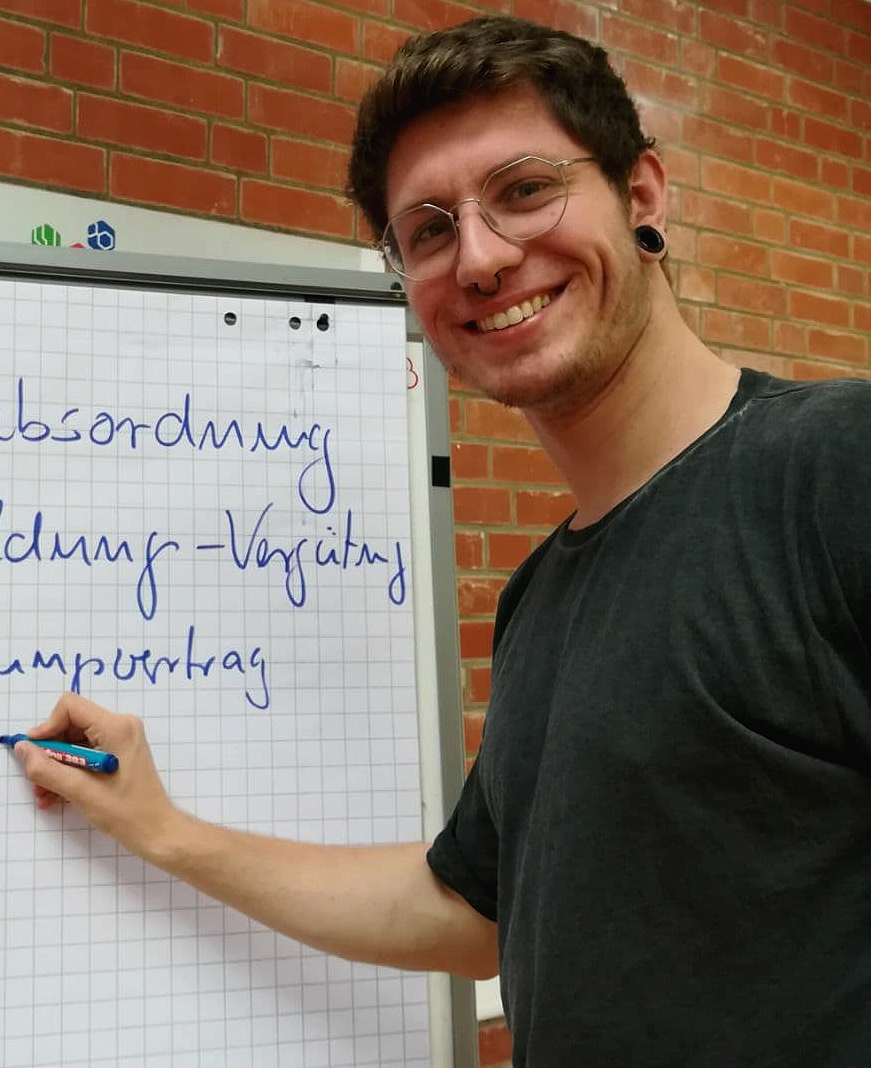 absordnung
ldung-Vergütung
umpvertrag